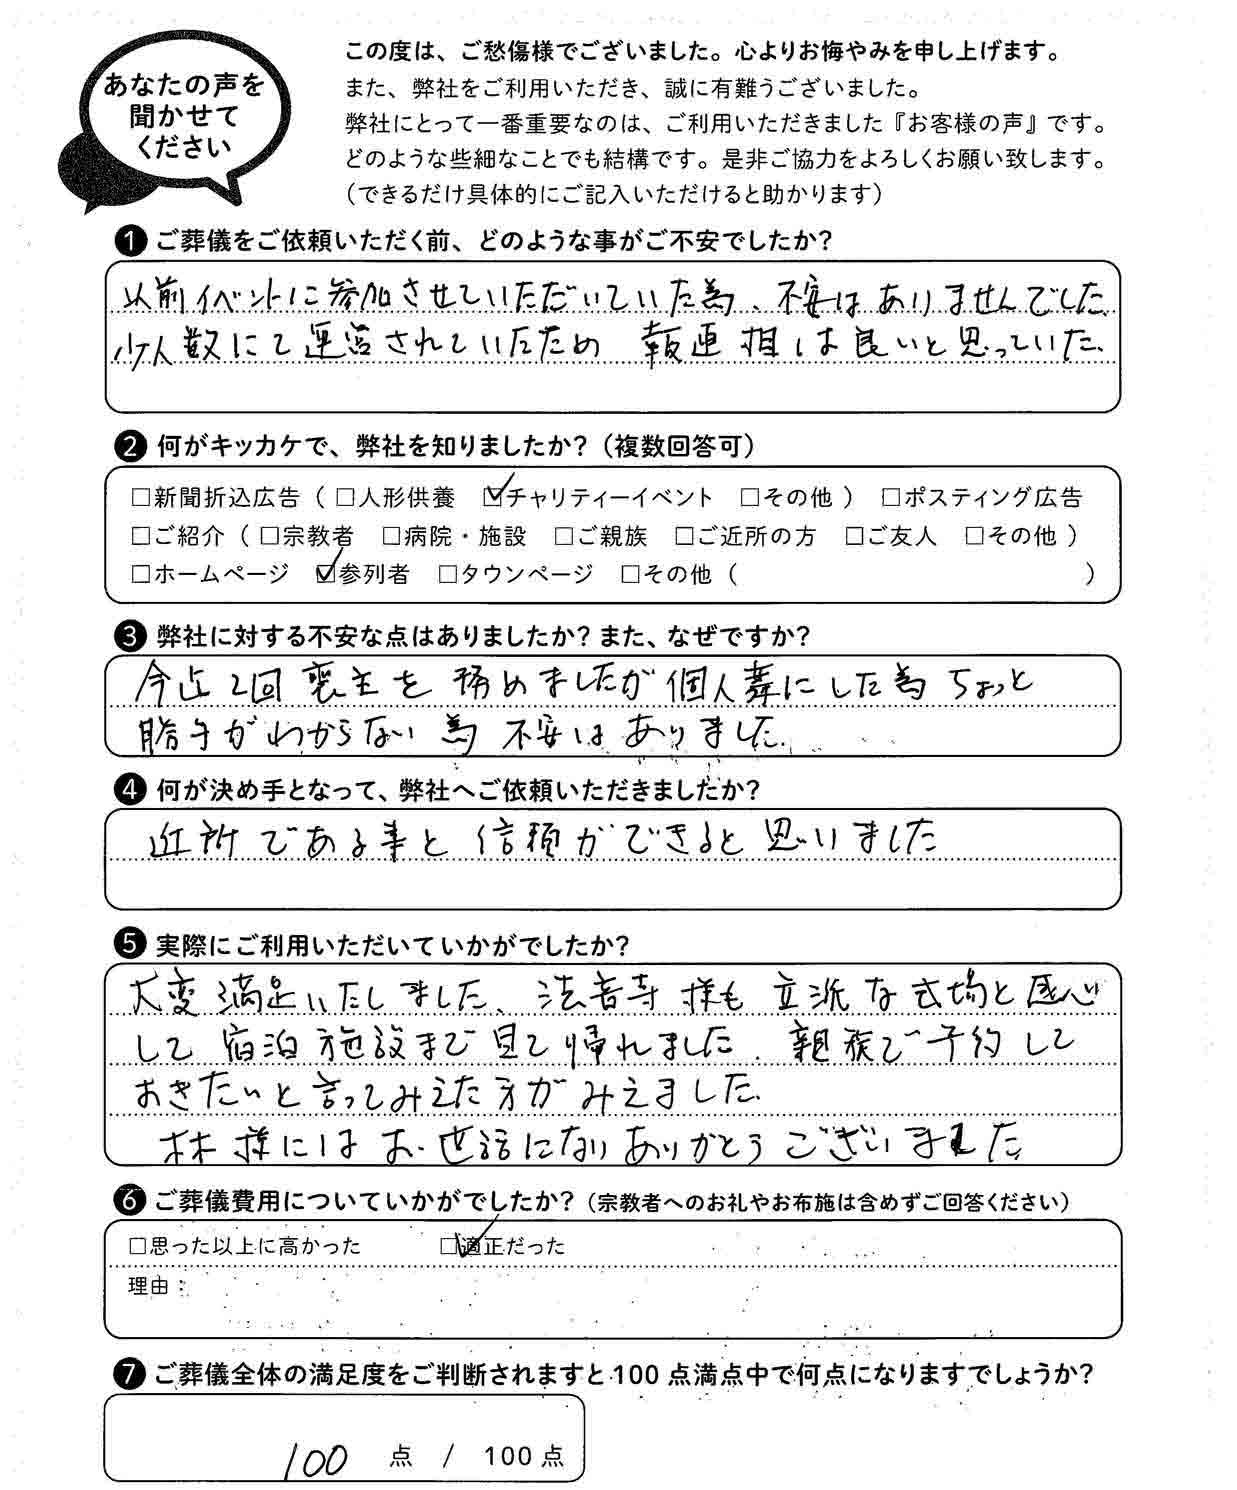 あなたの声を
聞かせて
ください
この度は、ご愁傷様でございました。心よりお悔やみを申し上げます。
また、弊社をご利用いただき、誠に有難うございました。
弊社にとって一番重要なのは、ご利用いただきました『お客様の声』です。
どのような些細なことでも結構です。是非ご協力をよろしくお願い致します。
（できるだけ具体的にご記入いただけると助かります）
❶ ご葬儀をご依頼いただく前、どのような事がご不安でしたか？
以前イベントに参加させていただいていた為、不安はありませんでした
少人数にて運営されていたため 担は良いと思っていた、
❷ 何がキッカケで、弊社を知りましたか？（複数回答可）
□新聞折込広告（□人形供養 ☑チャリティーイベント □その他） □ポスティング広告
□ご紹介（□宗教者 □病院・施設 □ご親族 □ご近所の方 □ご友人 □その他）
□ホームページ ☑参列者 □タウンページ □その他（ ）
❸ 弊社に対する不安な点はありましたか？また、なぜですか？
今迄2回喪主を務めましたが個人葬にした為ちょっと
勝手がわからない為 不安はありました。
❹ 何が決め手となって、弊社へご依頼いただきましたか？
近所である事と信頼ができると思いました
❺ 実際にご利用いただいていかがでしたか？
大変満足いたしました、法音寺様も立派な式場と感心
して宿泊施設まで見て帰れました。親族で予約して
おきたいと言ってみえた方がみえました。
林様にはお世話になりありがとうございました
❻ ご葬儀費用についていかがでしたか？（宗教者へのお礼やお布施は含めずご回答ください）
□思った以上に高かった ☑適正だった
理由：
❼ ご葬儀全体の満足度をご判断されますと100点満点中で何点になりますでしょうか？
100 点 / 100点